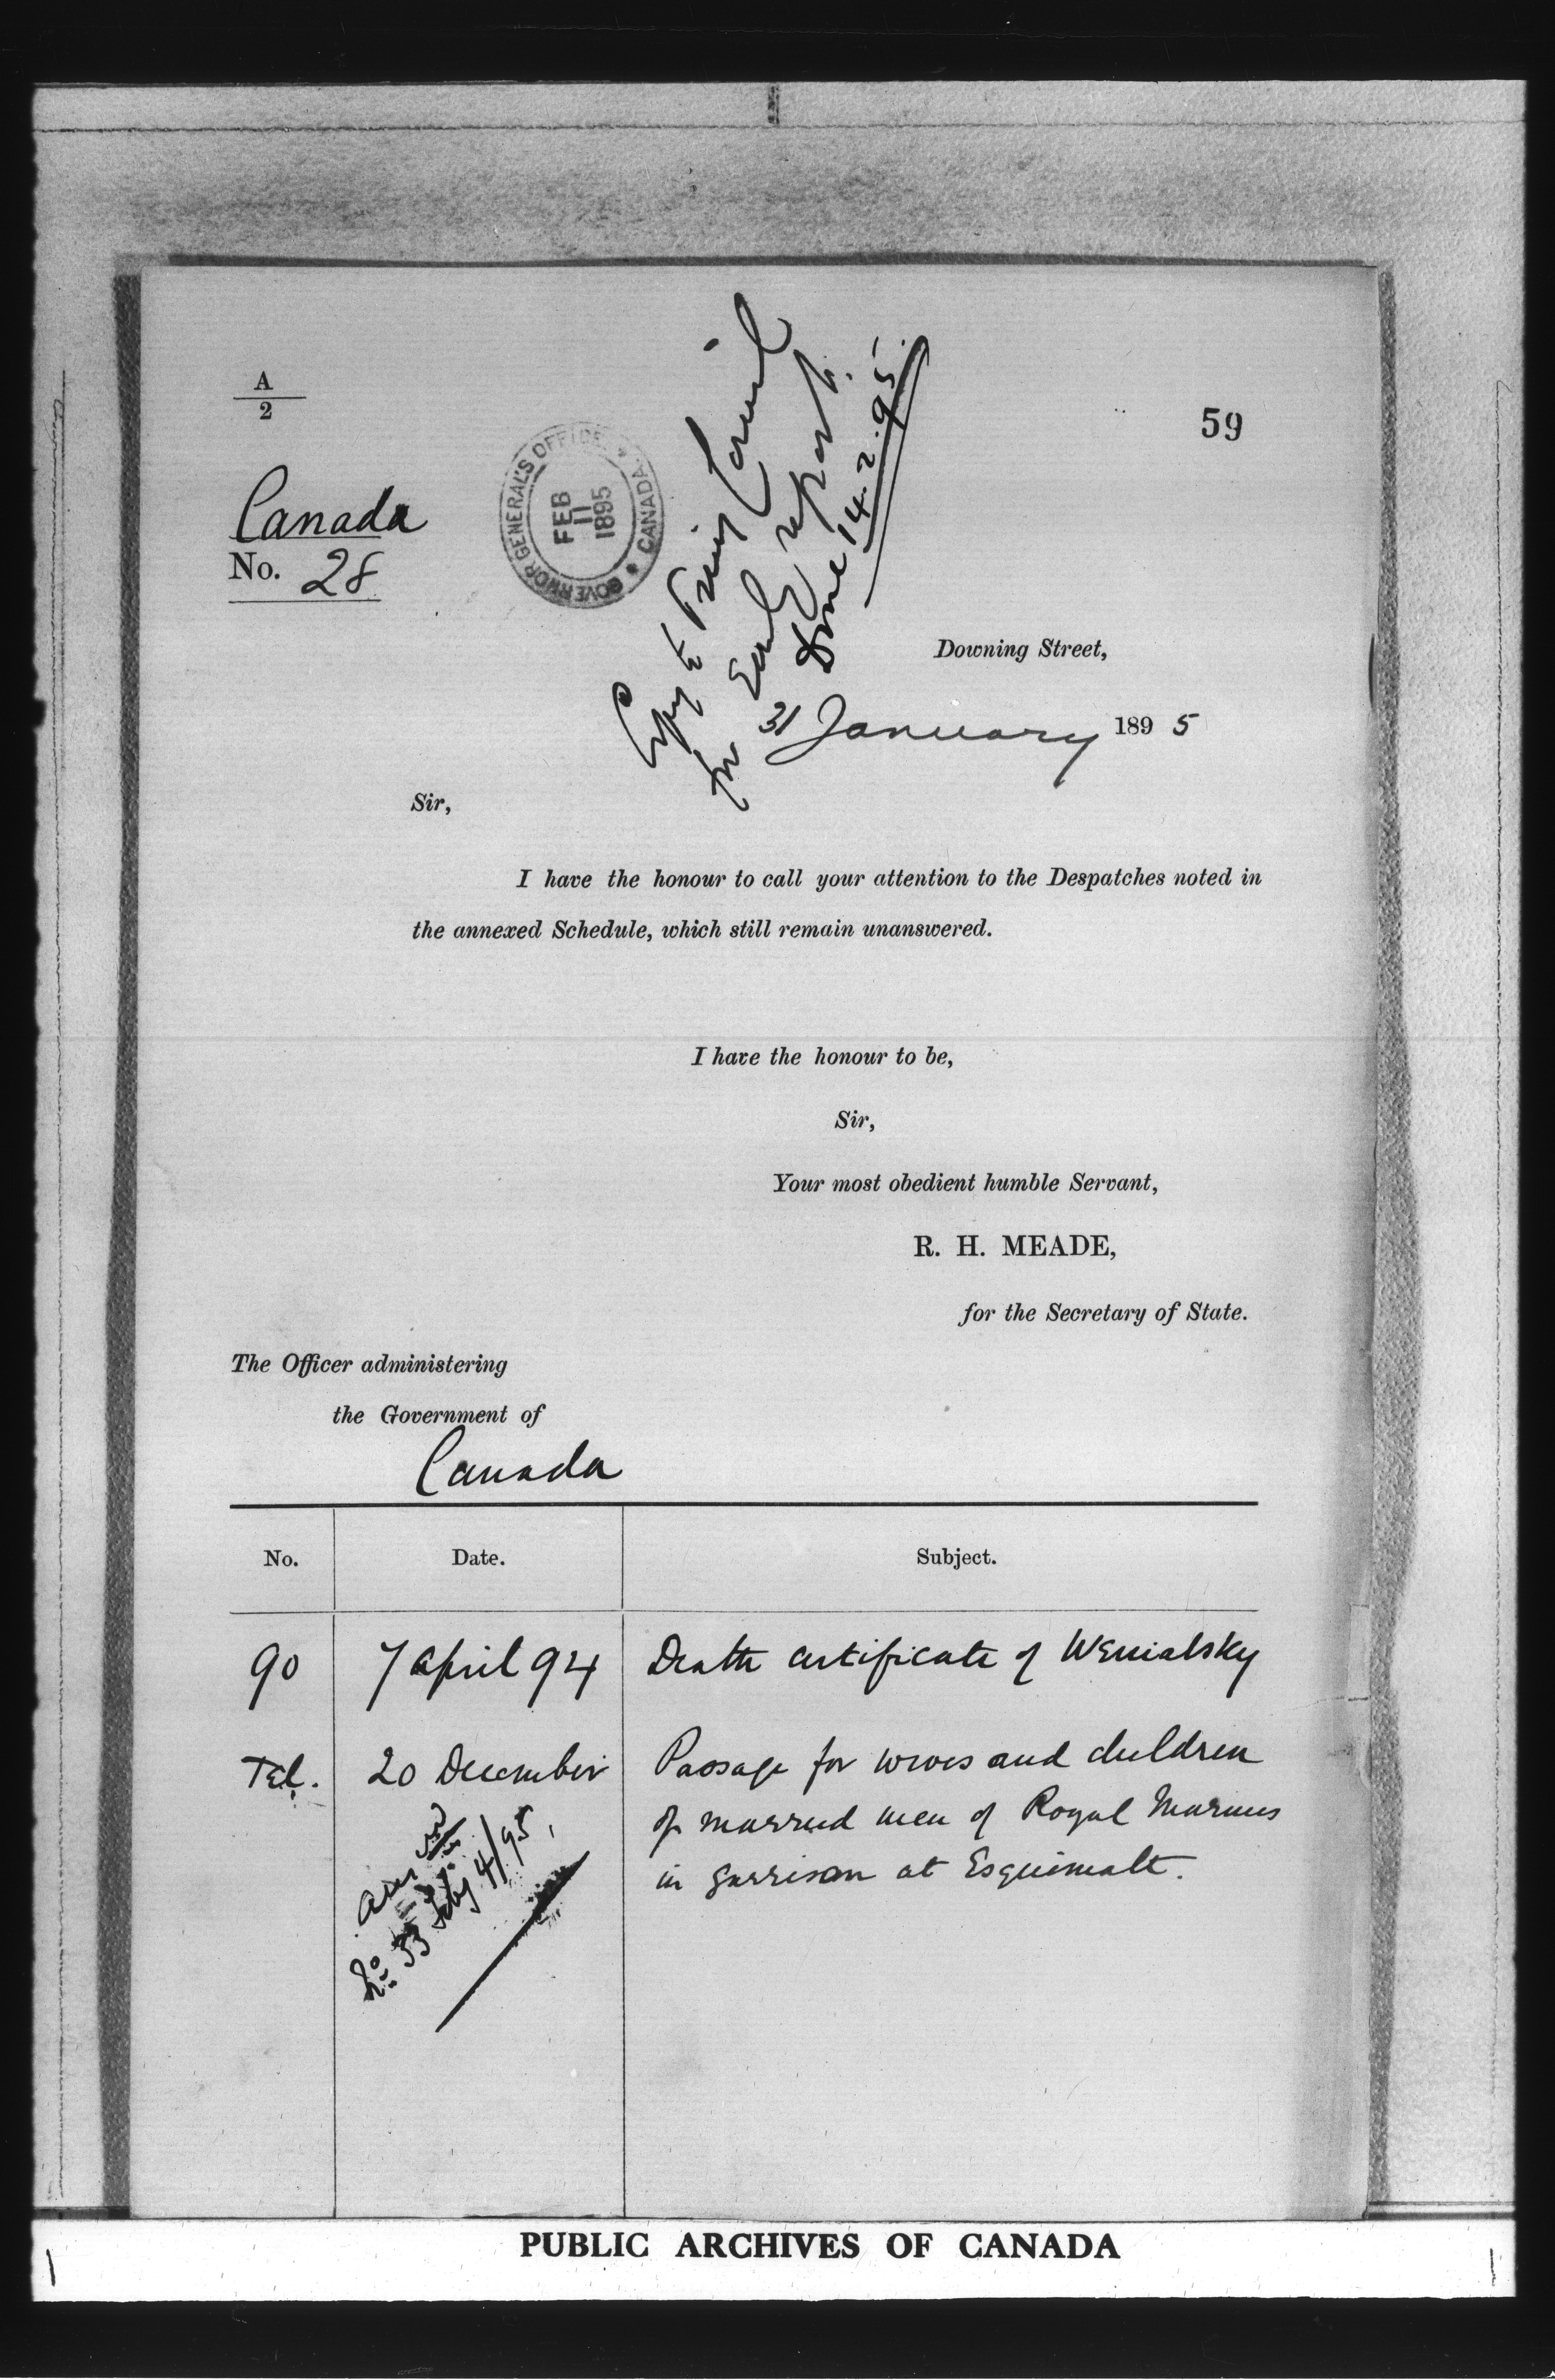 A
2
59
Canada
No. 28
GOVERNOR GENERAL'S OFFICE * CANADA *
FEB
11
1895
Copy to Privy Council
for Early report.
Done 14.2.95.
Downing Street,
31 January 1895
Sir,
I have the honour to call your attention to the Despatches noted in
the annexed Schedule, which still remain unanswered.
I have the honour to be,
Sir,
Your most obedient humble Servant,
R. H. MEADE,
for the Secretary of State.
The Officer administering
the Government of
Canada
No. Date. Subject.
90 7 April 94 Death certificate of
Tel. 20 December Passage for wives and children
of married men of Royal Marines
in garrison at Esquimalt.
No. 33 Feby 4/95.
PUBLIC ARCHIVES OF CANADA